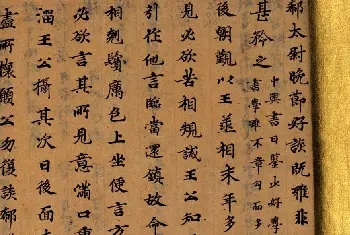 郗太尉晚節好談既雅非
甚矜之中興書曰鑒少好學
書學雖不章句而多
後朝覲以王丞相末年多
見必欲苦相規誡王公知
引作他言臨當還鎮故命
相翹鬚厲色上坐便言方
必欲言其所見意滿口重
溜王公攝其次曰後面未
盡所懷願公勿復談郗